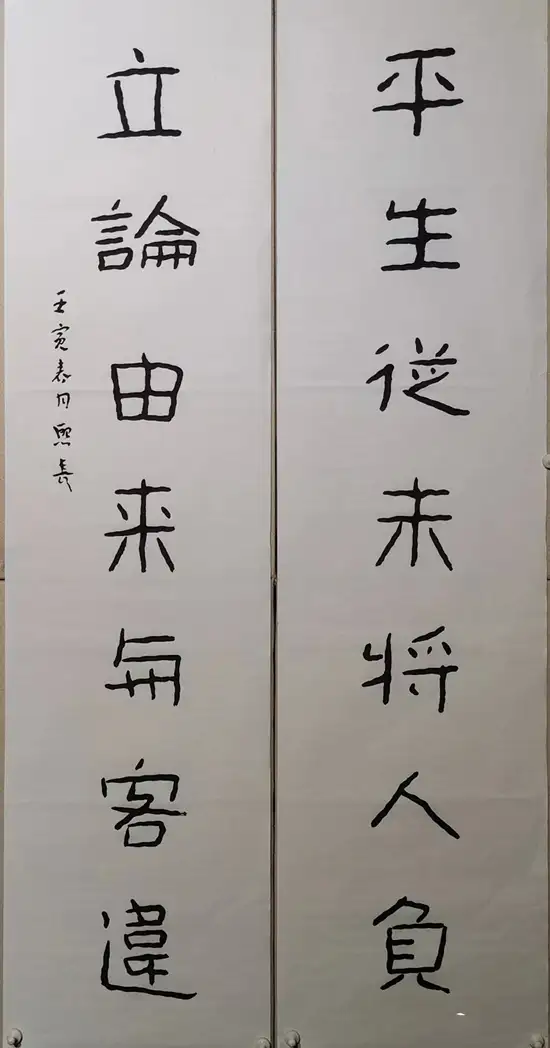 平生從未將人負
立論由来每客違
壬寅春月熙長